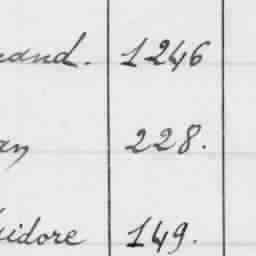 rand. 1246
an 228.
sidore 149.